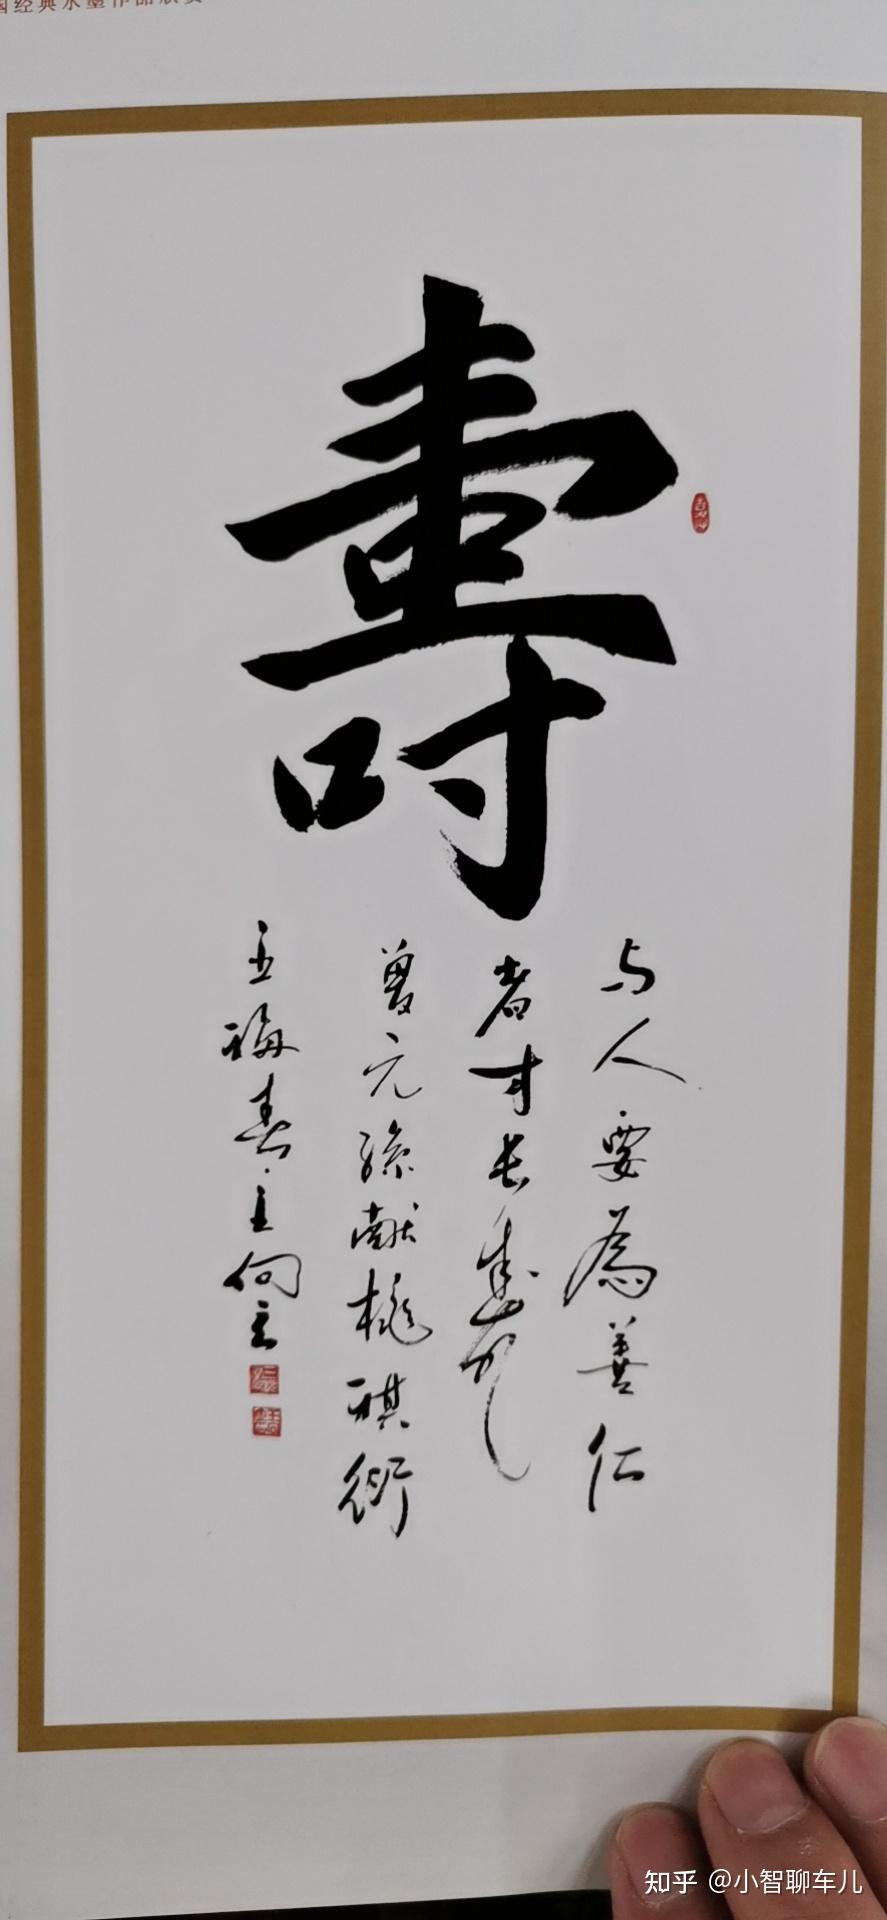 国经典水墨作品欣赏
壽
与人要為善仁
者才长寿
曾元孫献桃祺衍
五福春主何主
知乎 @小智聊车儿